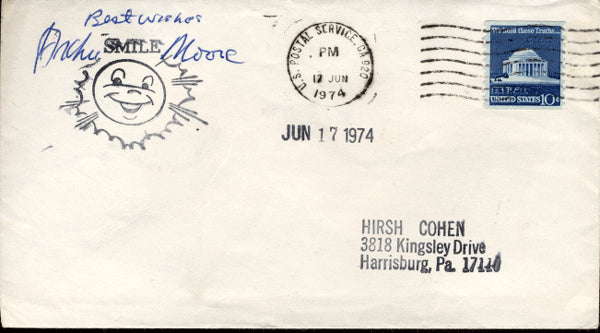 Best wishes
Archie Moore
SMILE
U.S. POSTAL SERVICE, CA 920
PM
17 JUN
1974
We hold these Truths...
UNITED STATES 10¢
JUN 17 1974
HIRSH COHEN
3818 Kingsley Drive
Harrisburg, Pa. 17110